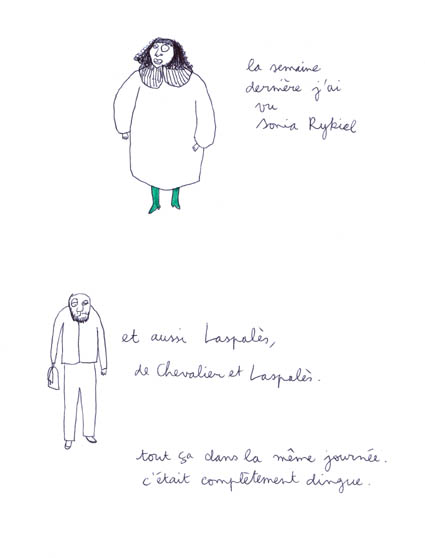 la semaine
dernière j'ai
vu
Sonia Rykiel
et aussi Laspalès,
de Chevalier et Laspalès.
tout ça dans la même journée.
c'était complètement dingue.